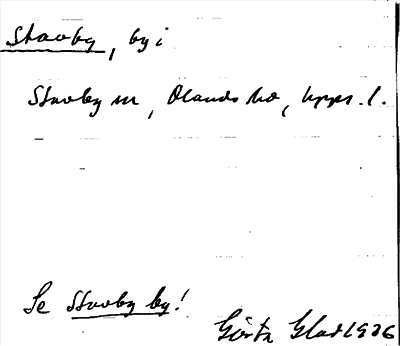 Stavby, by i
Stavby sn, Olands hd, Upps. l.
Se Stavby by!
Gösta Glad 1936